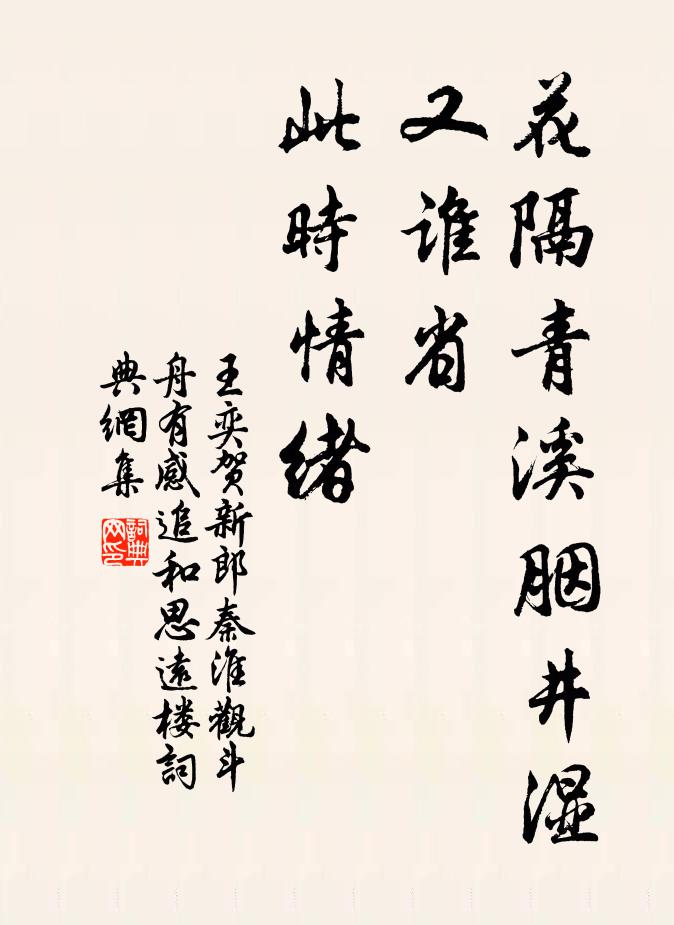 花隔青溪胭井湿
又谁省
此時情绪
王奕贺新郎秦淮觀斗
舟有感追和思遠楼詞
典網集
詞典网印